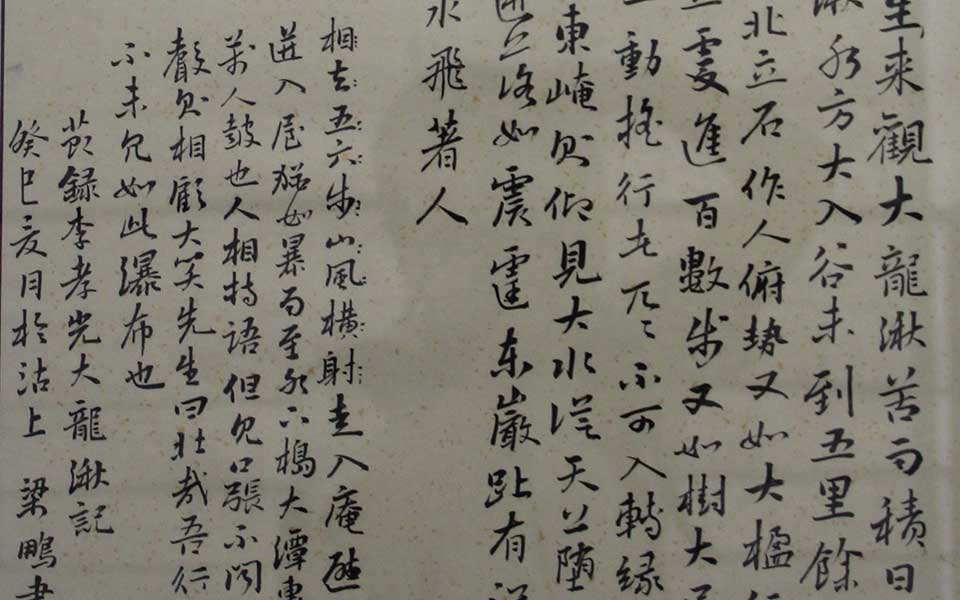 生来觀大龍湫苦雨積日
湫水方大入谷未到五里餘
北立石作人俯勢又如大楹行
更進百數步又如樹大
動搖行
不可入轉緣
東崦則仰見大水從天上墮
如震霆東巖趾有
水飛著人
相去五六步山風橫射走入庵避
迸入屋猶如暴雨至水下搗大潭轟
万人鼓也人相持語但見口張不聞
聲則相顧大笑先生曰壯哉吾行
不未見如此瀑布也
節錄李孝光大龍湫記
癸巳夏月於沽上 梁鵬書